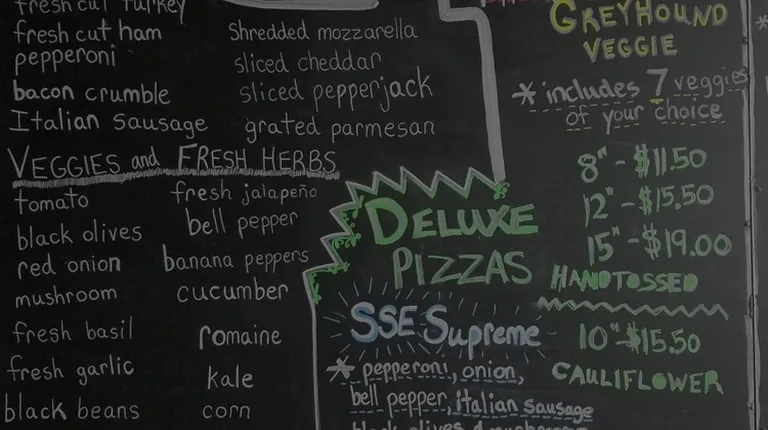 fresh cut turkey
fresh cut ham
pepperoni
bacon crumble
Italian sausage
Shredded mozzarella
sliced cheddar
sliced pepperjack
grated parmesan
VEGGIES and FRESH HERBS
tomato
black olives
red onion
mushroom
fresh basil
fresh garlic
black beans
fresh jalapeño
bell pepper
banana peppers
cucumber
romaine
kale
corn
DELUXE
PIZZAS
SSE Supreme
* pepperoni, onion,
bell pepper, italian sausage
black olives & mushrooms
GREYHOUND
VEGGIE
* includes 7 veggies
of your choice
8" - $11.50
12" - $15.50
15" - $19.00
HANDTOSSED
10" - $15.50
CAULIFLOWER